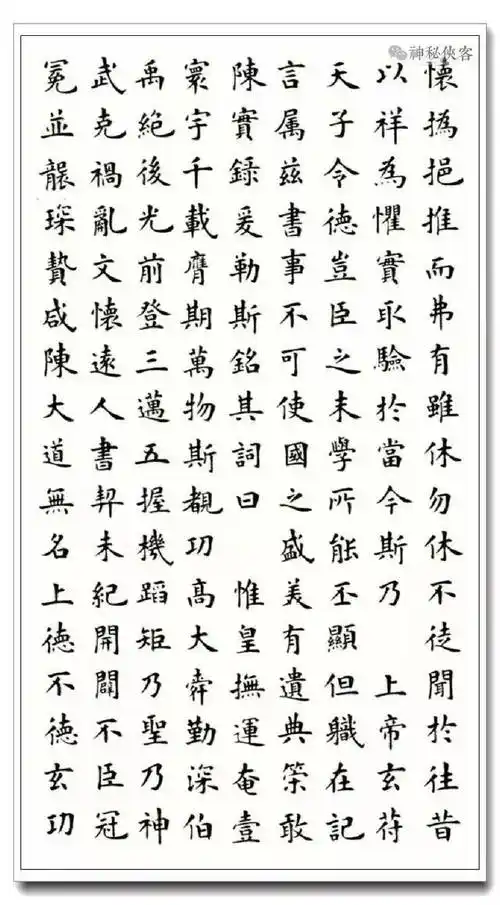 神秘俠客
懷撝挹推而弗有雖休勿休不徒聞於往昔
以祥為懼實取驗於當今斯乃 上帝玄符
天子令德豈臣之末學所能丕顯但職在記
言属茲書事不可使國之盛美有遺典策敢
陳實錄爰勒斯銘其詞曰 惟皇撫運奄壹
寰宇千載膺期萬物斯覩功高大舜勤深伯
禹絶後光前登三邁五握機蹈矩乃聖乃神
武克禍亂文懷遠人書契未紀開闢不臣冠
冕並襲琛贄咸陳大道無名上德不德玄功